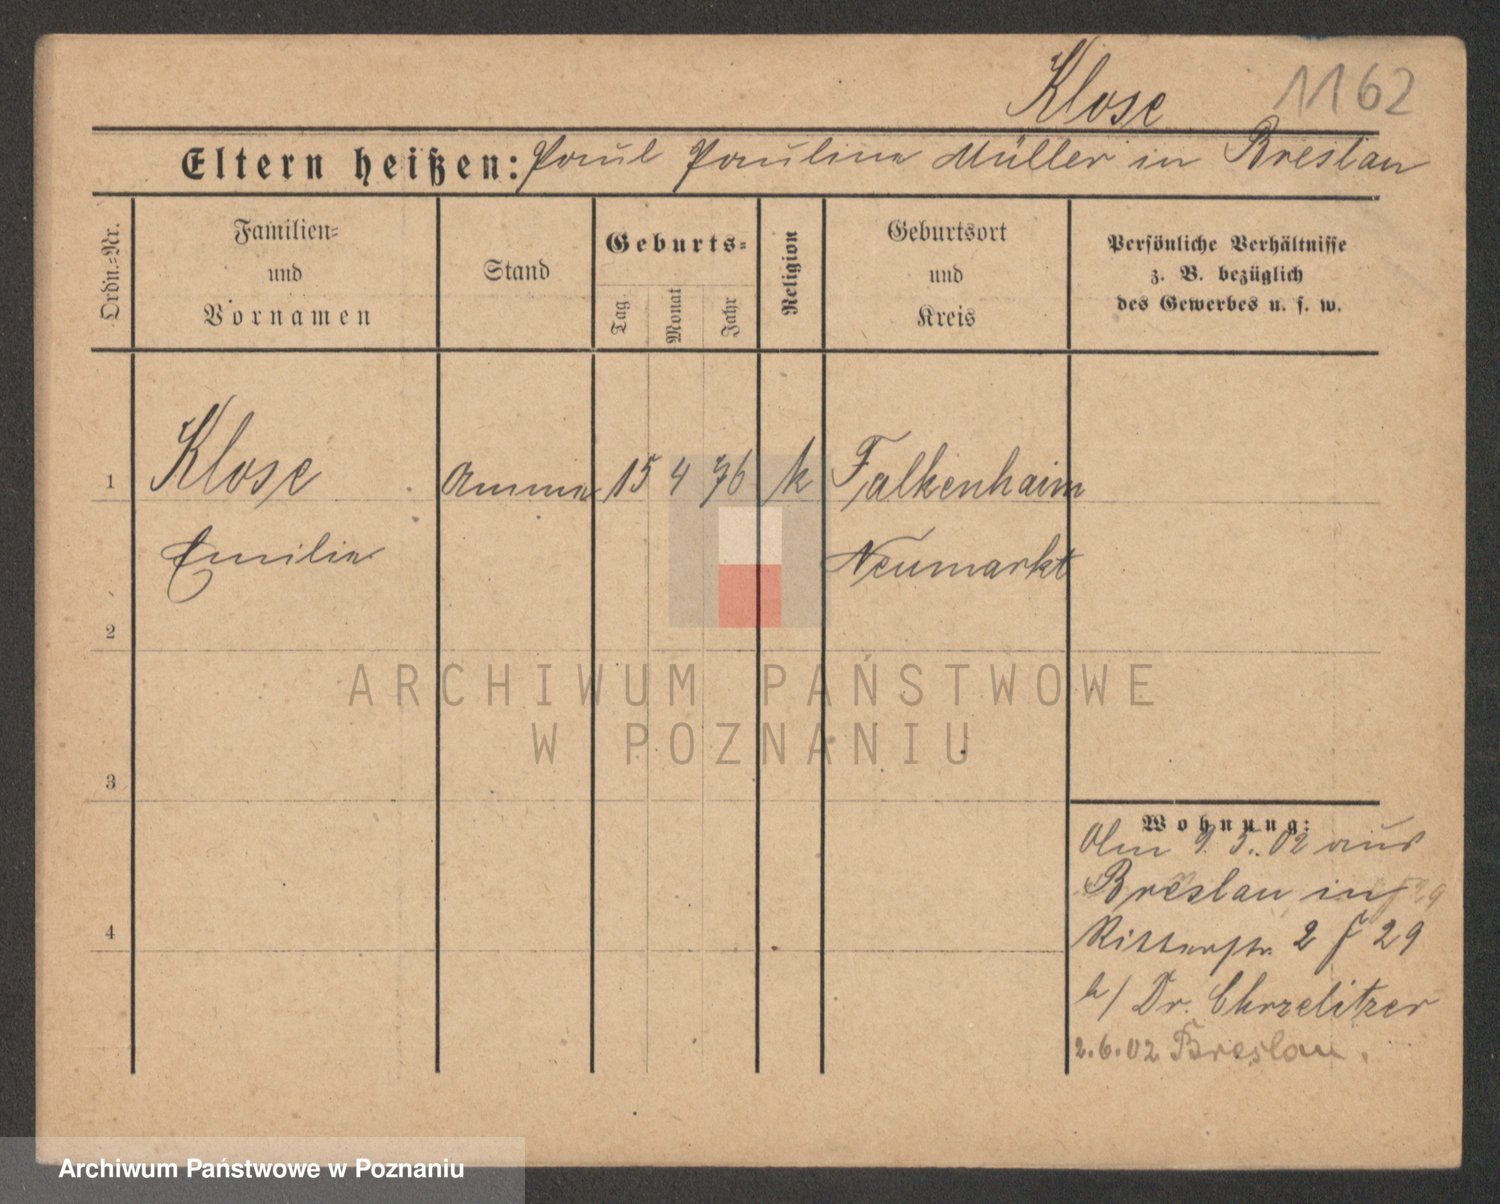 Klose 1162
Eltern heißen: Paul Pauline Müller in Breslau
Ordn.=Nr.
Familien=
und
Vornamen
Stand
Geburts=
Tag
Monat
Jahr
Religion
Geburtsort
und
Kreis
Persönliche Verhältnisse
z. B. bezüglich
des Gewerbes u. s. w.
1 Klose Amme 15 4 76 k Falkenhaim
Emilie Neumarkt
2
3
4
Wohnung:
Am 9. 5. 02 aus
Breslau in
Ritterstr. 2 29
b/ Dr. Chrzelitzer
2.6.02 Breslau.
ARCHIWUM PAŃSTWOWE
W POZNANIU
Archiwum Państwowe w Poznaniu